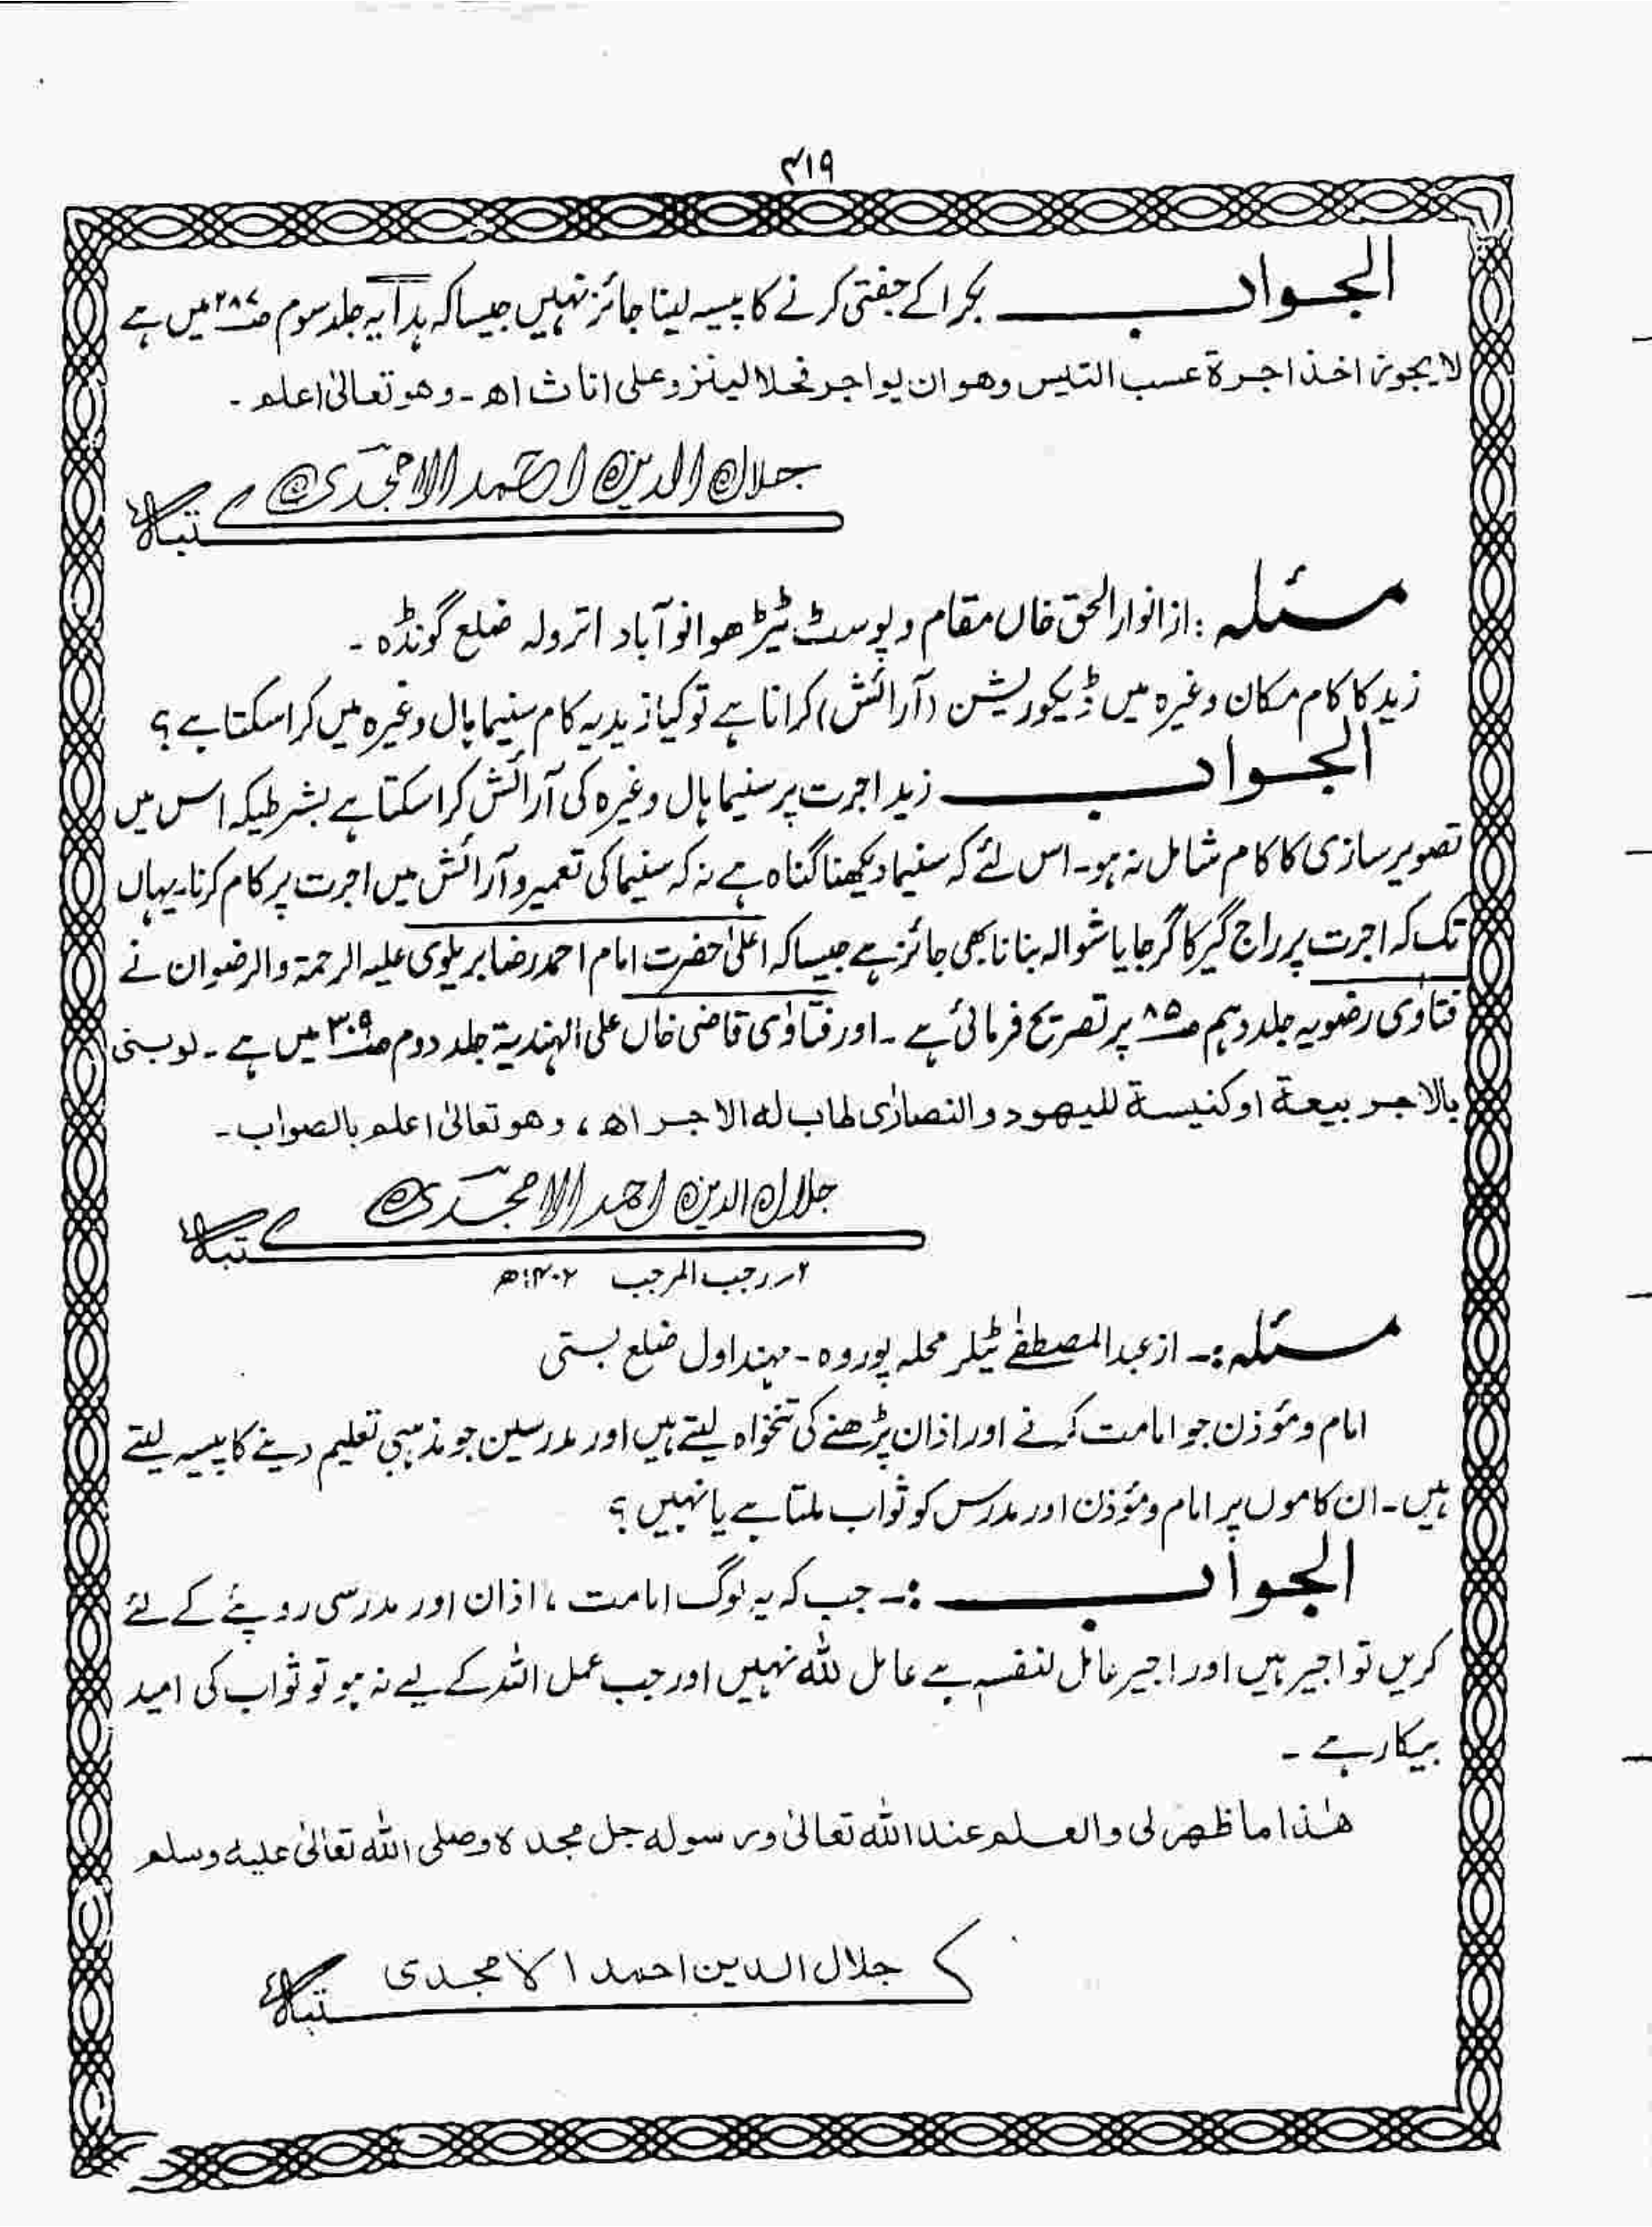 ۴۱۹
الجواب ـــ بکرا کے جفتی کرنے کا پیسہ لینا جائز نہیں جیسا کہ ہدایہ جلد سوم ص۲۸۷ میں ہے
لا یجوز اخذ اجرة عسب التیس وھو ان یواجر فحلا لینزو علی اناث اھ۔ وھو تعالیٰ اعلم۔
جلال الدین احمد الامجدی کتبہ
مسئلہ : از انوار الحق خاں مقام و پوسٹ ٹیڑھوانو آباد اترولہ ضلع گونڈہ۔
زید کا کام مکان وغیرہ میں ڈیکوریشن (آرائش) کرانا ہے تو کیا زید یہ کام سنیما ہال وغیرہ میں کرا سکتا ہے ؟
الجواب ـــ زید اجرت پر سنیما ہال وغیرہ کی آرائش کرا سکتا ہے بشرطیکہ اس میں
تصویر سازی کا کام شامل نہ ہو۔ اس لئے کہ سنیما دیکھنا گناہ ہے نہ کہ سنیما کی تعمیر و آرائش میں اجرت پر کام کرنا۔ یہاں
تک کہ اجرت پر راج گیر کا گرجا یا شوالہ بنانا بھی جائز ہے جیسا کہ اعلیٰ حضرت امام احمد رضا بریلوی علیہ الرحمۃ والرضوان نے
فتاوٰی رضویہ جلد دہم ص۸۵ پر تصریح فرمائی ہے۔ اور فتاوٰی قاضی خاں علی الہندیۃ جلد دوم ص۳۰۹ میں ہے۔ لو بنی
بالاجر بیعة او کنیسة للیھود والنصارٰی طاب له الاجر اھ ، وھو تعالیٰ اعلم بالصواب۔
جلال الدین احمد الامجدی کتبہ
۲ر رجب المرجب ۱۴۰۲ھ
مسئلہ :۔ از عبد المصطفےٰ ٹیلر محلہ پوروہ۔ مہنداول ضلع بستی
امام و مؤذن جو امامت کرنے اور اذان پڑھنے کی تنخواہ لیتے ہیں اور مدرسین جو مذہبی تعلیم دینے کا پیسہ لیتے
ہیں۔ ان کاموں پر امام و مؤذن اور مدرس کو ثواب ملتا ہے یا نہیں ؟
الجواب ـــ :۔ جب کہ یہ لوگ امامت ، اذان اور مدرسی روپئے کے لئے
کریں تو اجیر ہیں اور اجیر عامل لنفسہٖ ہے عامل للّٰہ نہیں اور جب عمل اللّٰہ کے لیے نہ ہو تو ثواب کی امید
بیکار ہے۔
ھٰذا ما ظھر لی والعلم عند اللّٰہ تعالیٰ ورسوله جل مجدہ وصلی اللّٰہ تعالیٰ علیه وسلم
جلال الدین احمد الامجدی کتبہ